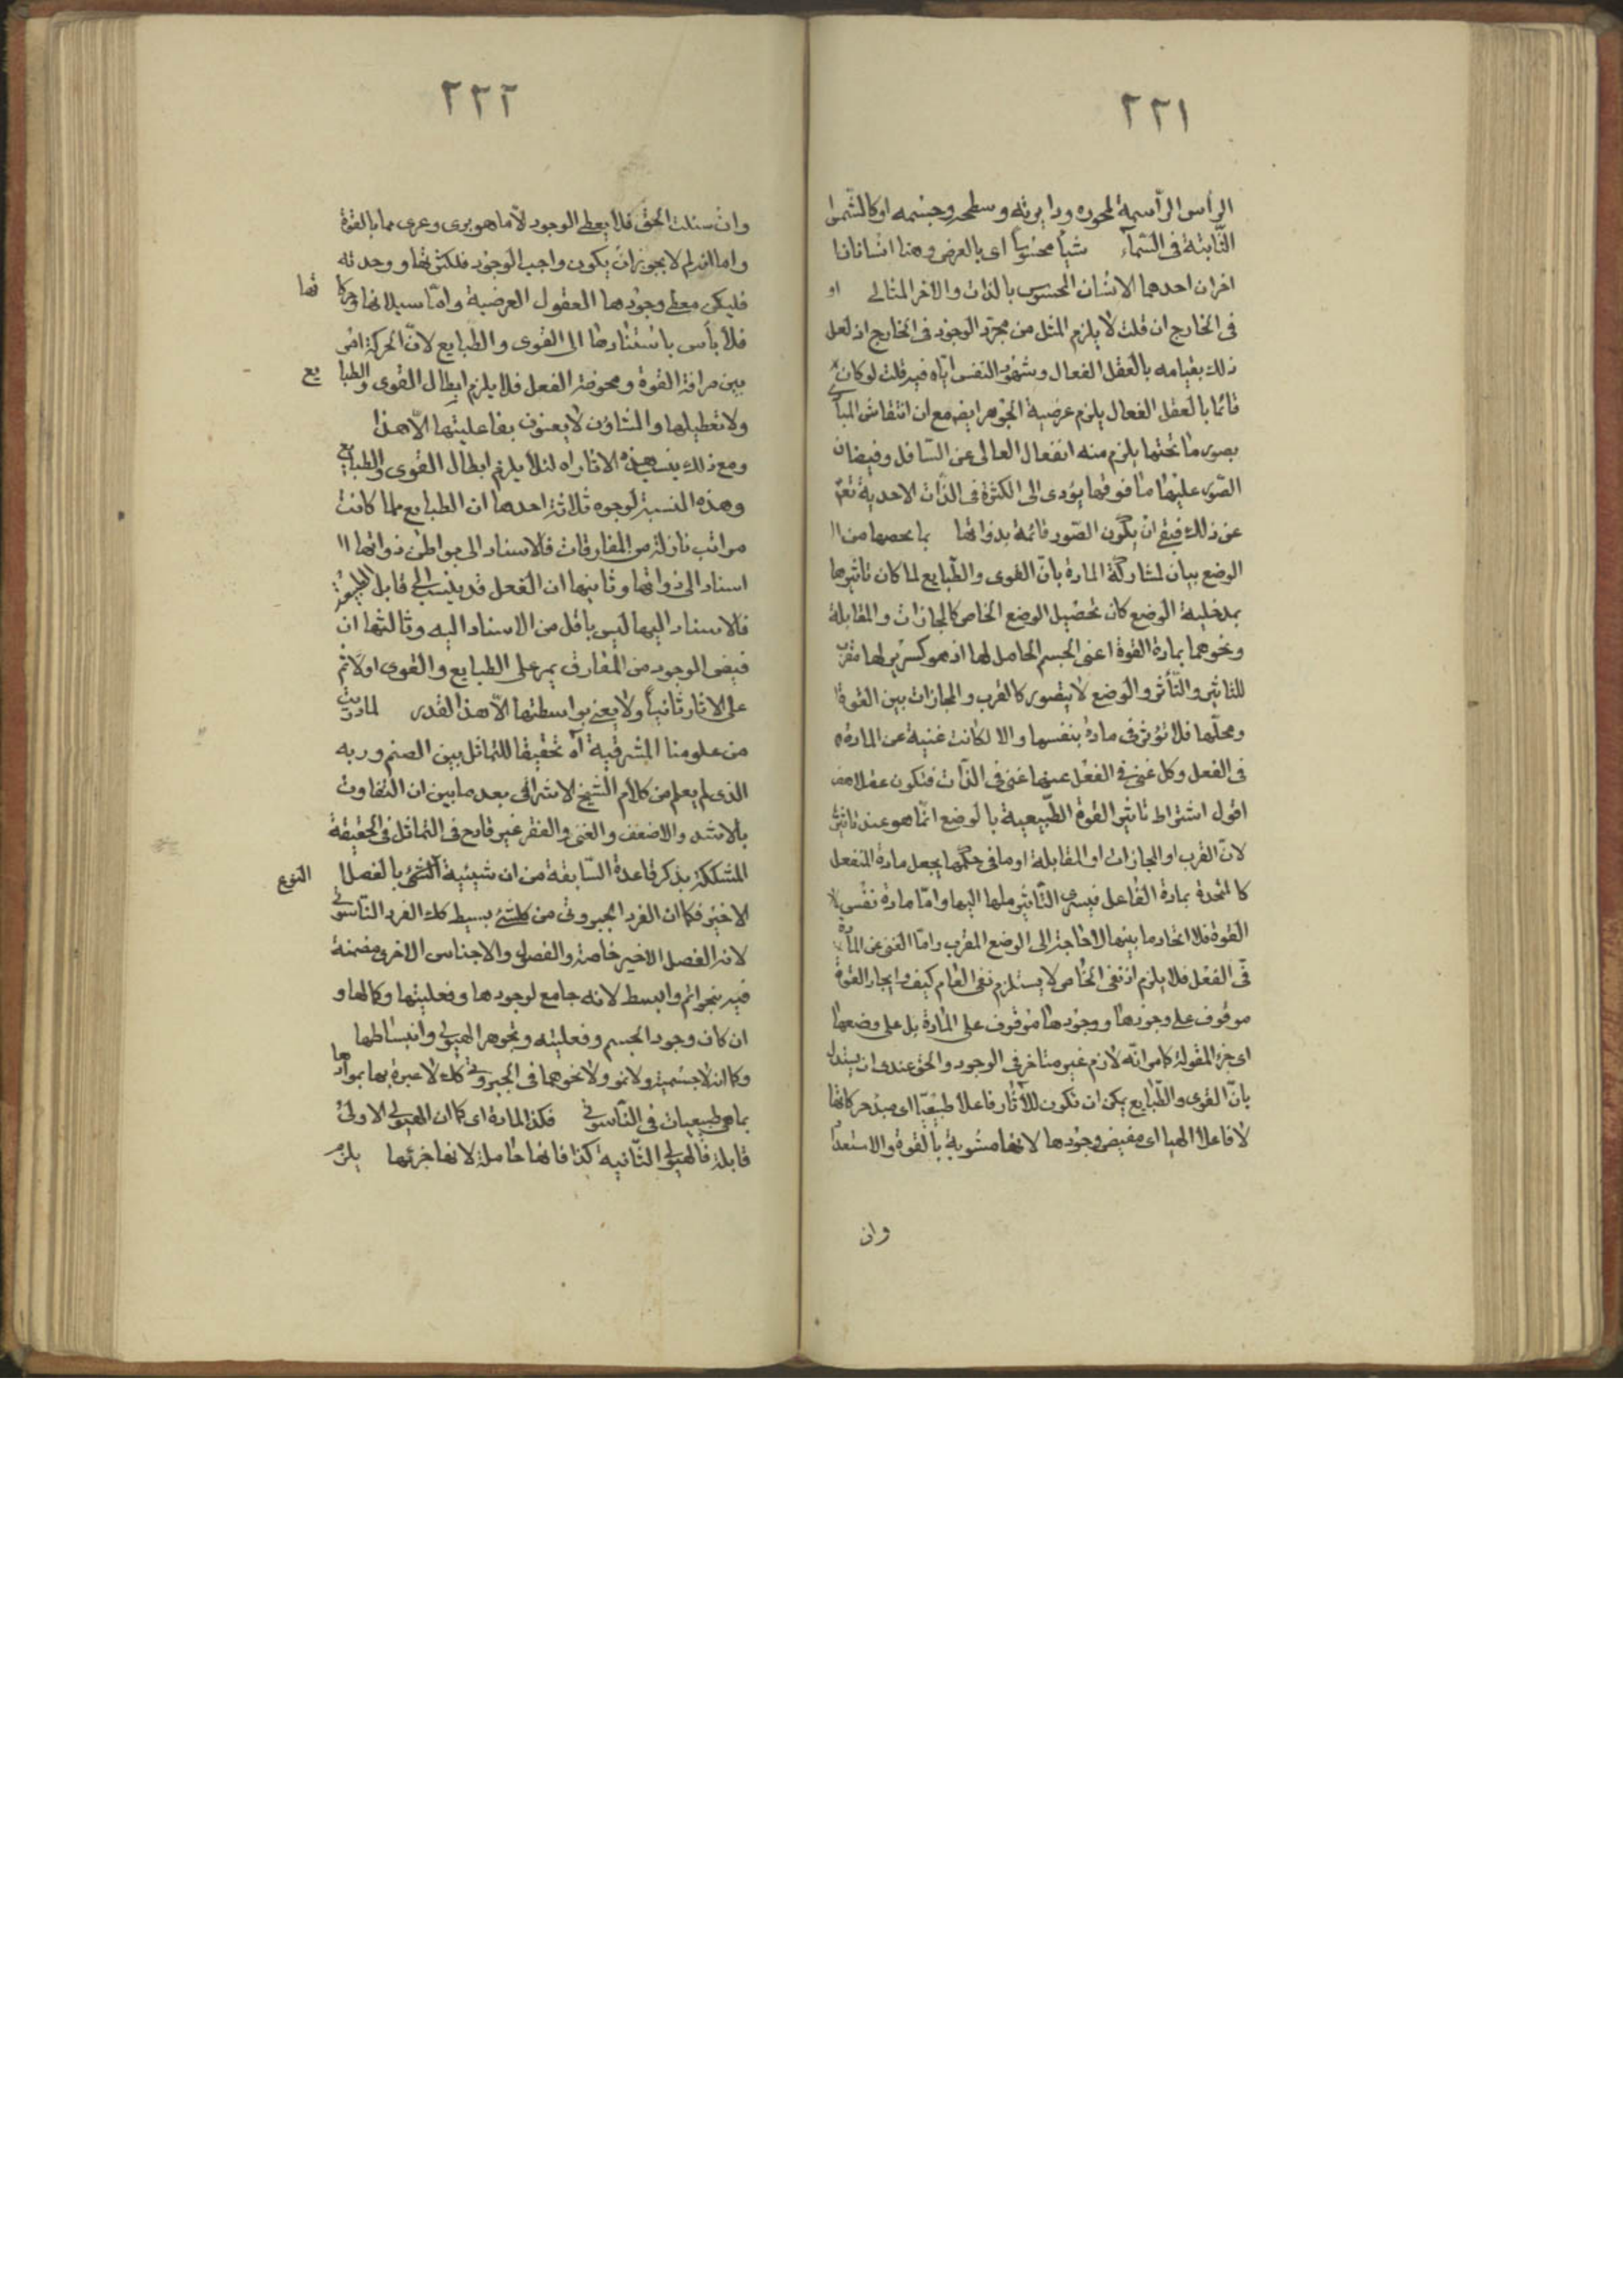 ٢٢١
الرأس الرأسمة لمحوره ودايرته وسطحه وجسمه او كالشموا
الثابتة فى السماء شيأ محسوسا اى بالعرض وهنا انسانان
اخران احدهما الانسان المحسوس بالذات والاخر المثالى او
فى الخارج ان قلت لا يلزم المثل من مجرّد الوجود فى الخارج اذ لعل
ذلك بقيامه بالعقل الفعال وشهود النفس ايّاه فيه قلت لو كان
قائما بالعقل الفعال يلزم عرضية الجوهر ايضا مع ان انتقاش المبادى
بصور ما تحتها يلزم منه انفعال العالى عن السّافل وفيضان
الصّور عليها مما فوقها يؤدى الى الكثرة فى الذّات الاحدية تعالى
عن ذلك فبقى ان يكون الصّور قائمة بذواتها بما يحصها من ا
الوضع بيان لمشاركة المادة بانّ القوى والطّبايع لما كان تاثيرها
بمدخلية الوضع كان تحصيل الوضع الخاص كالمجازات والمقابلة
ونحوهما بمادة القوة اعنى الجسم الحامل لها اذ هو كسرير لها مقرّب
للتاثير والتّأثر والوضع لا يتصور كالقرب والمجازات بين القوة
ومحلّها فلا تؤثر فى مادة بنفسها والا لكانت غنية عن المادة
فى الفعل وكل غنى فى الفعل عنها غنى فى الذّات فتكون عقلا هف
اقول اشتراط تاثير القوة الطّبيعية بالوضع انّما هو عند تاثير
لانّ القرب او المجازات او المقابلة او ما فى حكمها يجعل مادة المنفعل
كالمتحدة بمادة الفاعل فيسرى التّاثير ملها اليها وامّا مادة نفس
القوة فلا اتحاد ما بينها لا حاجة الى الوضع المقرب وامّا الغنى عن المادة
فى الفعل فلا يلزم اذ نفى الخاص لا يستلزم نفى العام كيف وايجاد القوة
موقوف على وجودها ووجودها موقوف على المادة بل على وضعها
اى جزء المقولة كما مر انّه لازم غير متاخر فى الوجود والحق عندى ان يستدل
بانّ القوى والطّبايع يمكن ان تكون للآثار فاعلا طبيعيّا اى مبدء حركاتها
لا فاعلا الهيا اى مفيض وجودها لانها مشوبة بالقوة والاستعداد
وان
٢٢٢
وان سئلت الحق فلا يعطى الوجود الّا ما هو برى وعرى مما بالقوة
واما انه لم لا يجوز ان يكون واجب الوجود فلكثرتها ووحدته
فليكن معطى وجودها العقول العرضية وامّا سيلانها وحركاتها
فلا بأس باستنادها الى القوى والطّبايع لانّ الحركة امر
بين صرافة القوة ومحوضة الفعل فلا يلزم ابطال القوى والطبايع
ولا تعطيلها والمشاؤن لا يعنون بفاعليتها الّا هذا
ومع ذلك ينسب هذه الاثار اه لئلا يلزم ابطال القوى والطبايع
وهذه النسبة لوجوه ثلاثة احدها ان الطبايع مما كانت
مراتب نازلة من المفارقات فالاسناد الى بواطن ذواتها
اسناد الى ذواتها وثانيها ان الفعل قد ينسب الى قابل
فالاسناد اليها ليس باقل من الاسناد اليه وثالثها ان
فيض الوجود من المفارق يمر على الطبايع والقوى اولا ثم
على الاثار ثانيا ولا يعنى بواسطتها الّا هذا القدر لما دريت
من علومنا المشرقية اه تحقيقا للتماثل بين الصنم وربه
الذى لم يعلم من كلام الشيخ الاشراقى بعد ما بين ان التفاوت
بالاشد والاضعف والغنى والفقر غير قادح فى التماثل فى الحقيقة
المشككة بذكر قاعدة السّابقة من ان شيئية الشئ بالفصل
النوع
الاخير فكما ان الفرد الجبروتى من كل شئ بسيط كك الفرد النّاسوتى
لانه الفصل الاخير خاصة والفصول والاجناس الاخرى مضمنة
فيه بنحو اتم وابسط لانه جامع لوجودها وفعليتها وكمالها و
ان كان وجود الجسم وفعليته وتجوهر الهيولى وانبساطها
وكما انه لا جسمية ولا نمو ولا نحوهما فى الجبروتى كك لا عبرة بها بموادها
بما هى طبيعيات فى النّاسوتى فكذا المادة اى كما ان الهيولى الاولى
قابلة فالهيولى الثّانية كذا فانها حاملة لانها جزئها يلزم